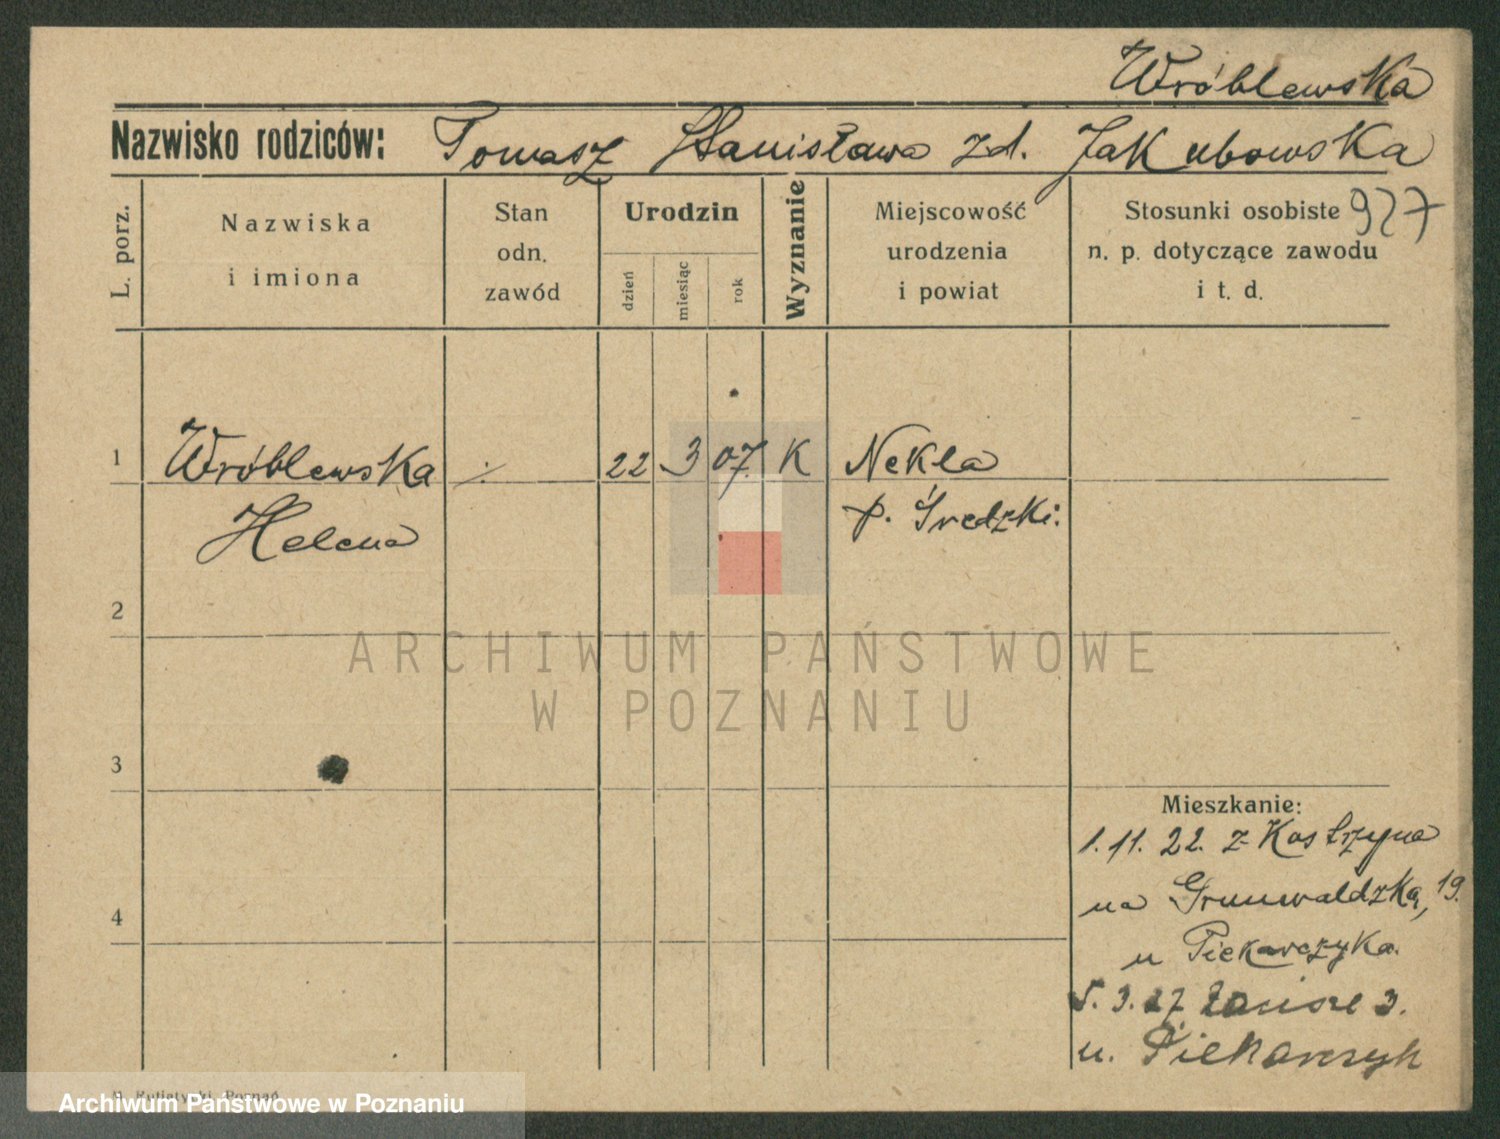 Wróblewska
Nazwisko rodziców: Tomasz Stanisława zd. Jakubowska
L. porz.
Nazwiska
i imiona
Stan
odn.
zawód
Urodzin
dzień
miesiąc
rok
Wyznanie
Miejscowość
urodzenia
i powiat
Stosunki osobiste 927
n. p. dotyczące zawodu
i t. d.
1 Wróblewska ./. 22 3 07. K Nekla
Helena p. Średzki.
2
3
4
ARCHIWUM PAŃSTWOWE
W POZNANIU
Mieszkanie:
1.11.22. z Kostrzyna
na Grunwaldzką, 19.
u Piekarczyka.
5.3.27 3.
u. Piekarczyk
Poznań
Archiwum Państwowe w Poznaniu